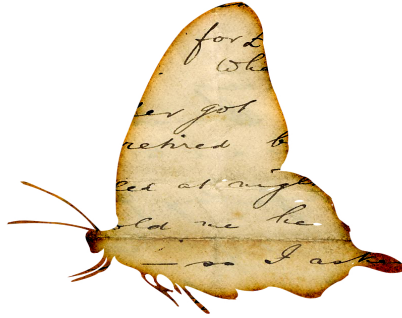 for £
Whe
er got
retired b
ed at nigh
old me he
— so I aske